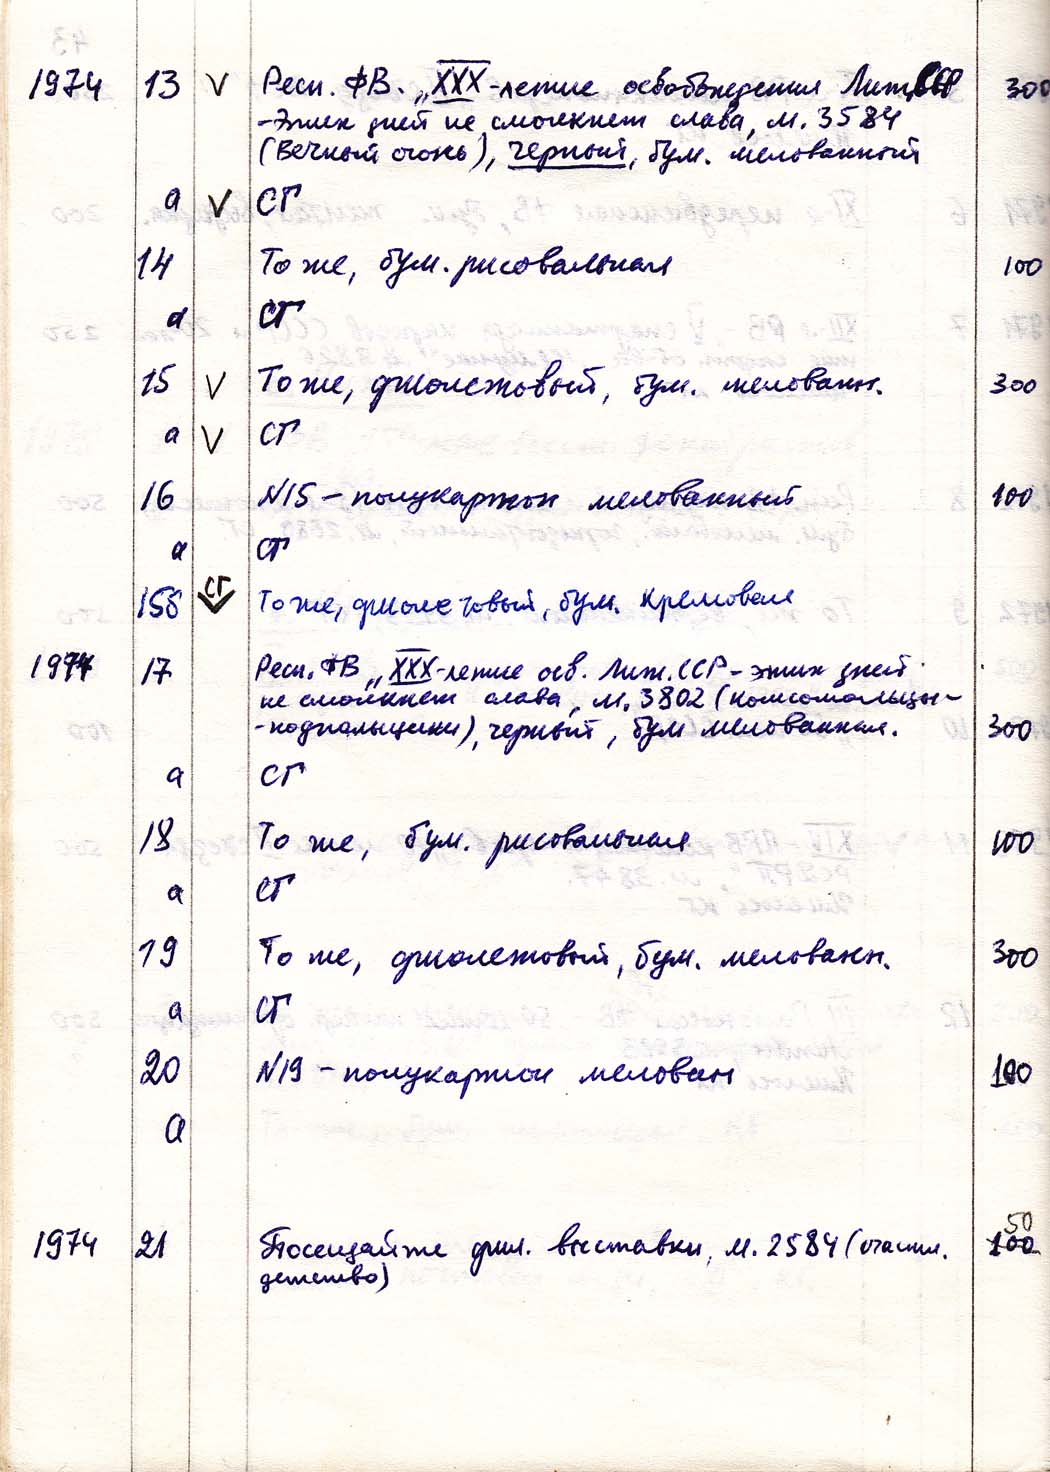 1974 13 V Респ. ФВ. „XXX-летие освобождения Лит.ССР 300
-Этих дней не смолкнет слава, м. 3584
(Вечный огонь), черный, бум. мелованный
а V СГ
14 То же, бум. рисовальная 100
а СГ
15 V То же, фиолетовый, бум. мелованн. 300
а V СГ
16 N15 - полукартон мелованный 100
а СГ
15б СГ V То же, фиолетовый, бум. кремовая
1974 17 Респ. ФВ „XXX-летие осв. Лит. ССР - этих дней
не смолкнет слава, м. 3802 (комсомольцы-
-подпольщики), черный, бум мелованная. 300
а СГ
18 То же, бум. рисовальная 100
а СГ
19 То же, фиолетовый, бум. мелованн. 300
а СГ
20 N19 - полукартон мелован 100
а
50
1974 21 Посещайте фил. выставки, м. 2584 (счастл. 100
детство)